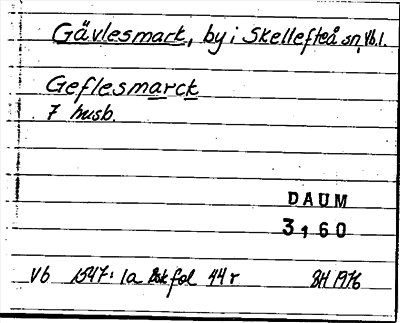 Gävlesmark, by i Skellefteå sn, Vb.l.
Geflesmarck
7 husb.
DAUM
3,60
Vb 1547: 1a Bsk fol 44r BH 1976